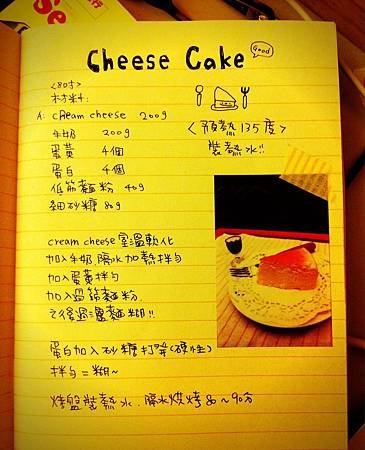 Cheese Cake
Good
<8吋>
材料:
A: cream cheese 200g
牛奶 200g
蛋黃 4個
蛋白 4個
低筋麵粉 40g
細砂糖 80g
<預熱135度>
裝熱水!!
cream cheese 室溫軟化
加入牛奶 隔水加熱拌勻
加入蛋黃拌勻
加入過篩麵粉.
之後過濾麵糊!!
蛋白加入砂糖打發(硬性)
拌勻 = 糊~
烤盤裝熱水.隔水燒烤80~90分